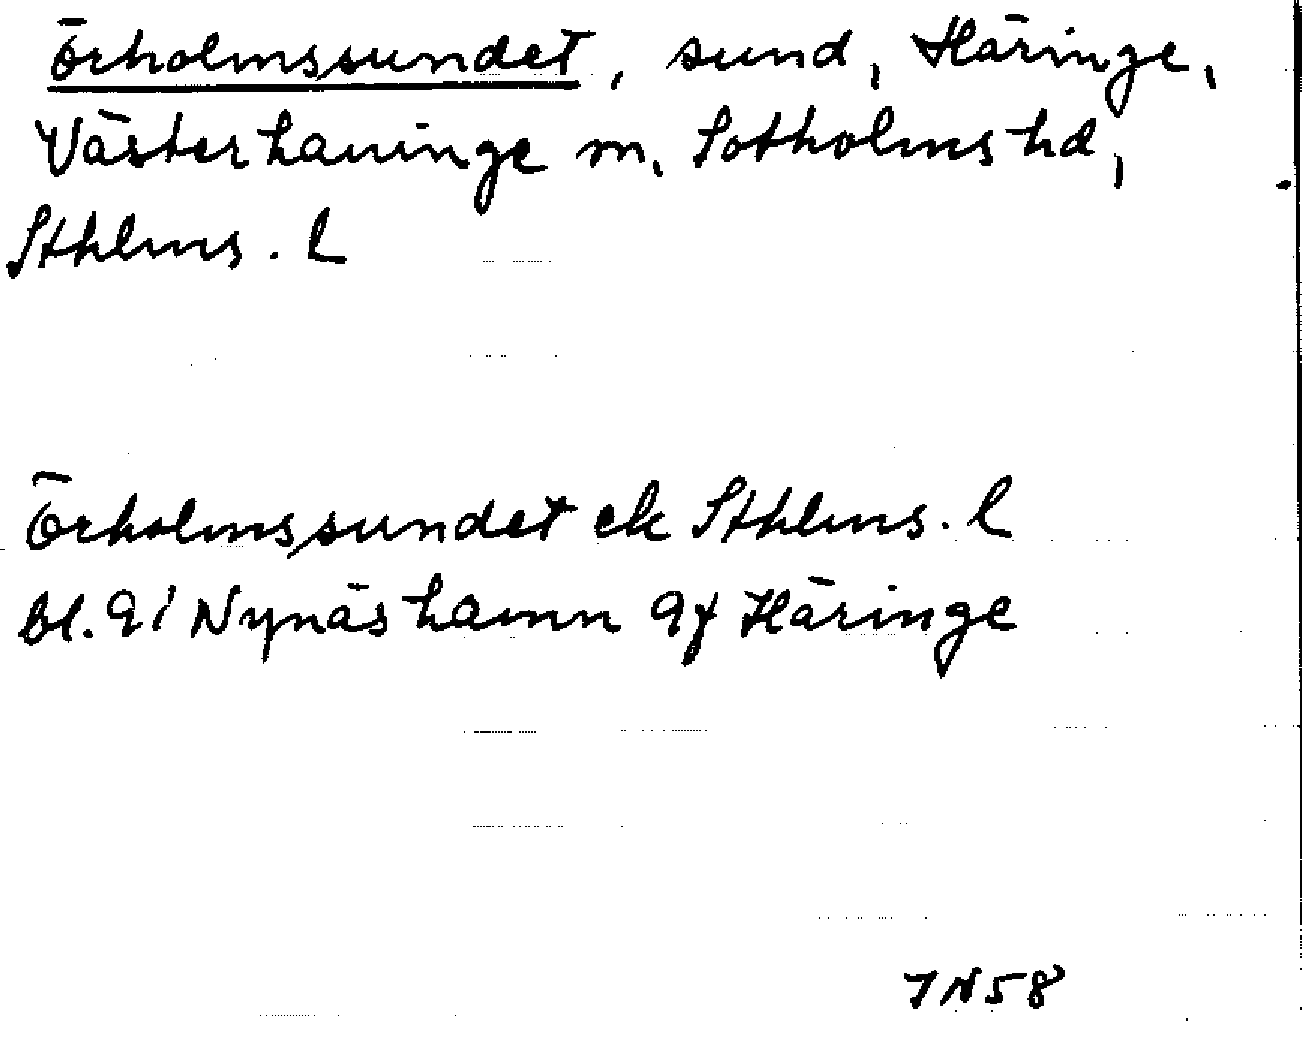 Örholmssundet, sund, Häringe,
Västerhaninge sn, Sotholms hd,
Sthlms. l
Örholmssundet ek Sthlms. l
bl. 91 Nynäshamn 9f Häringe
IN58